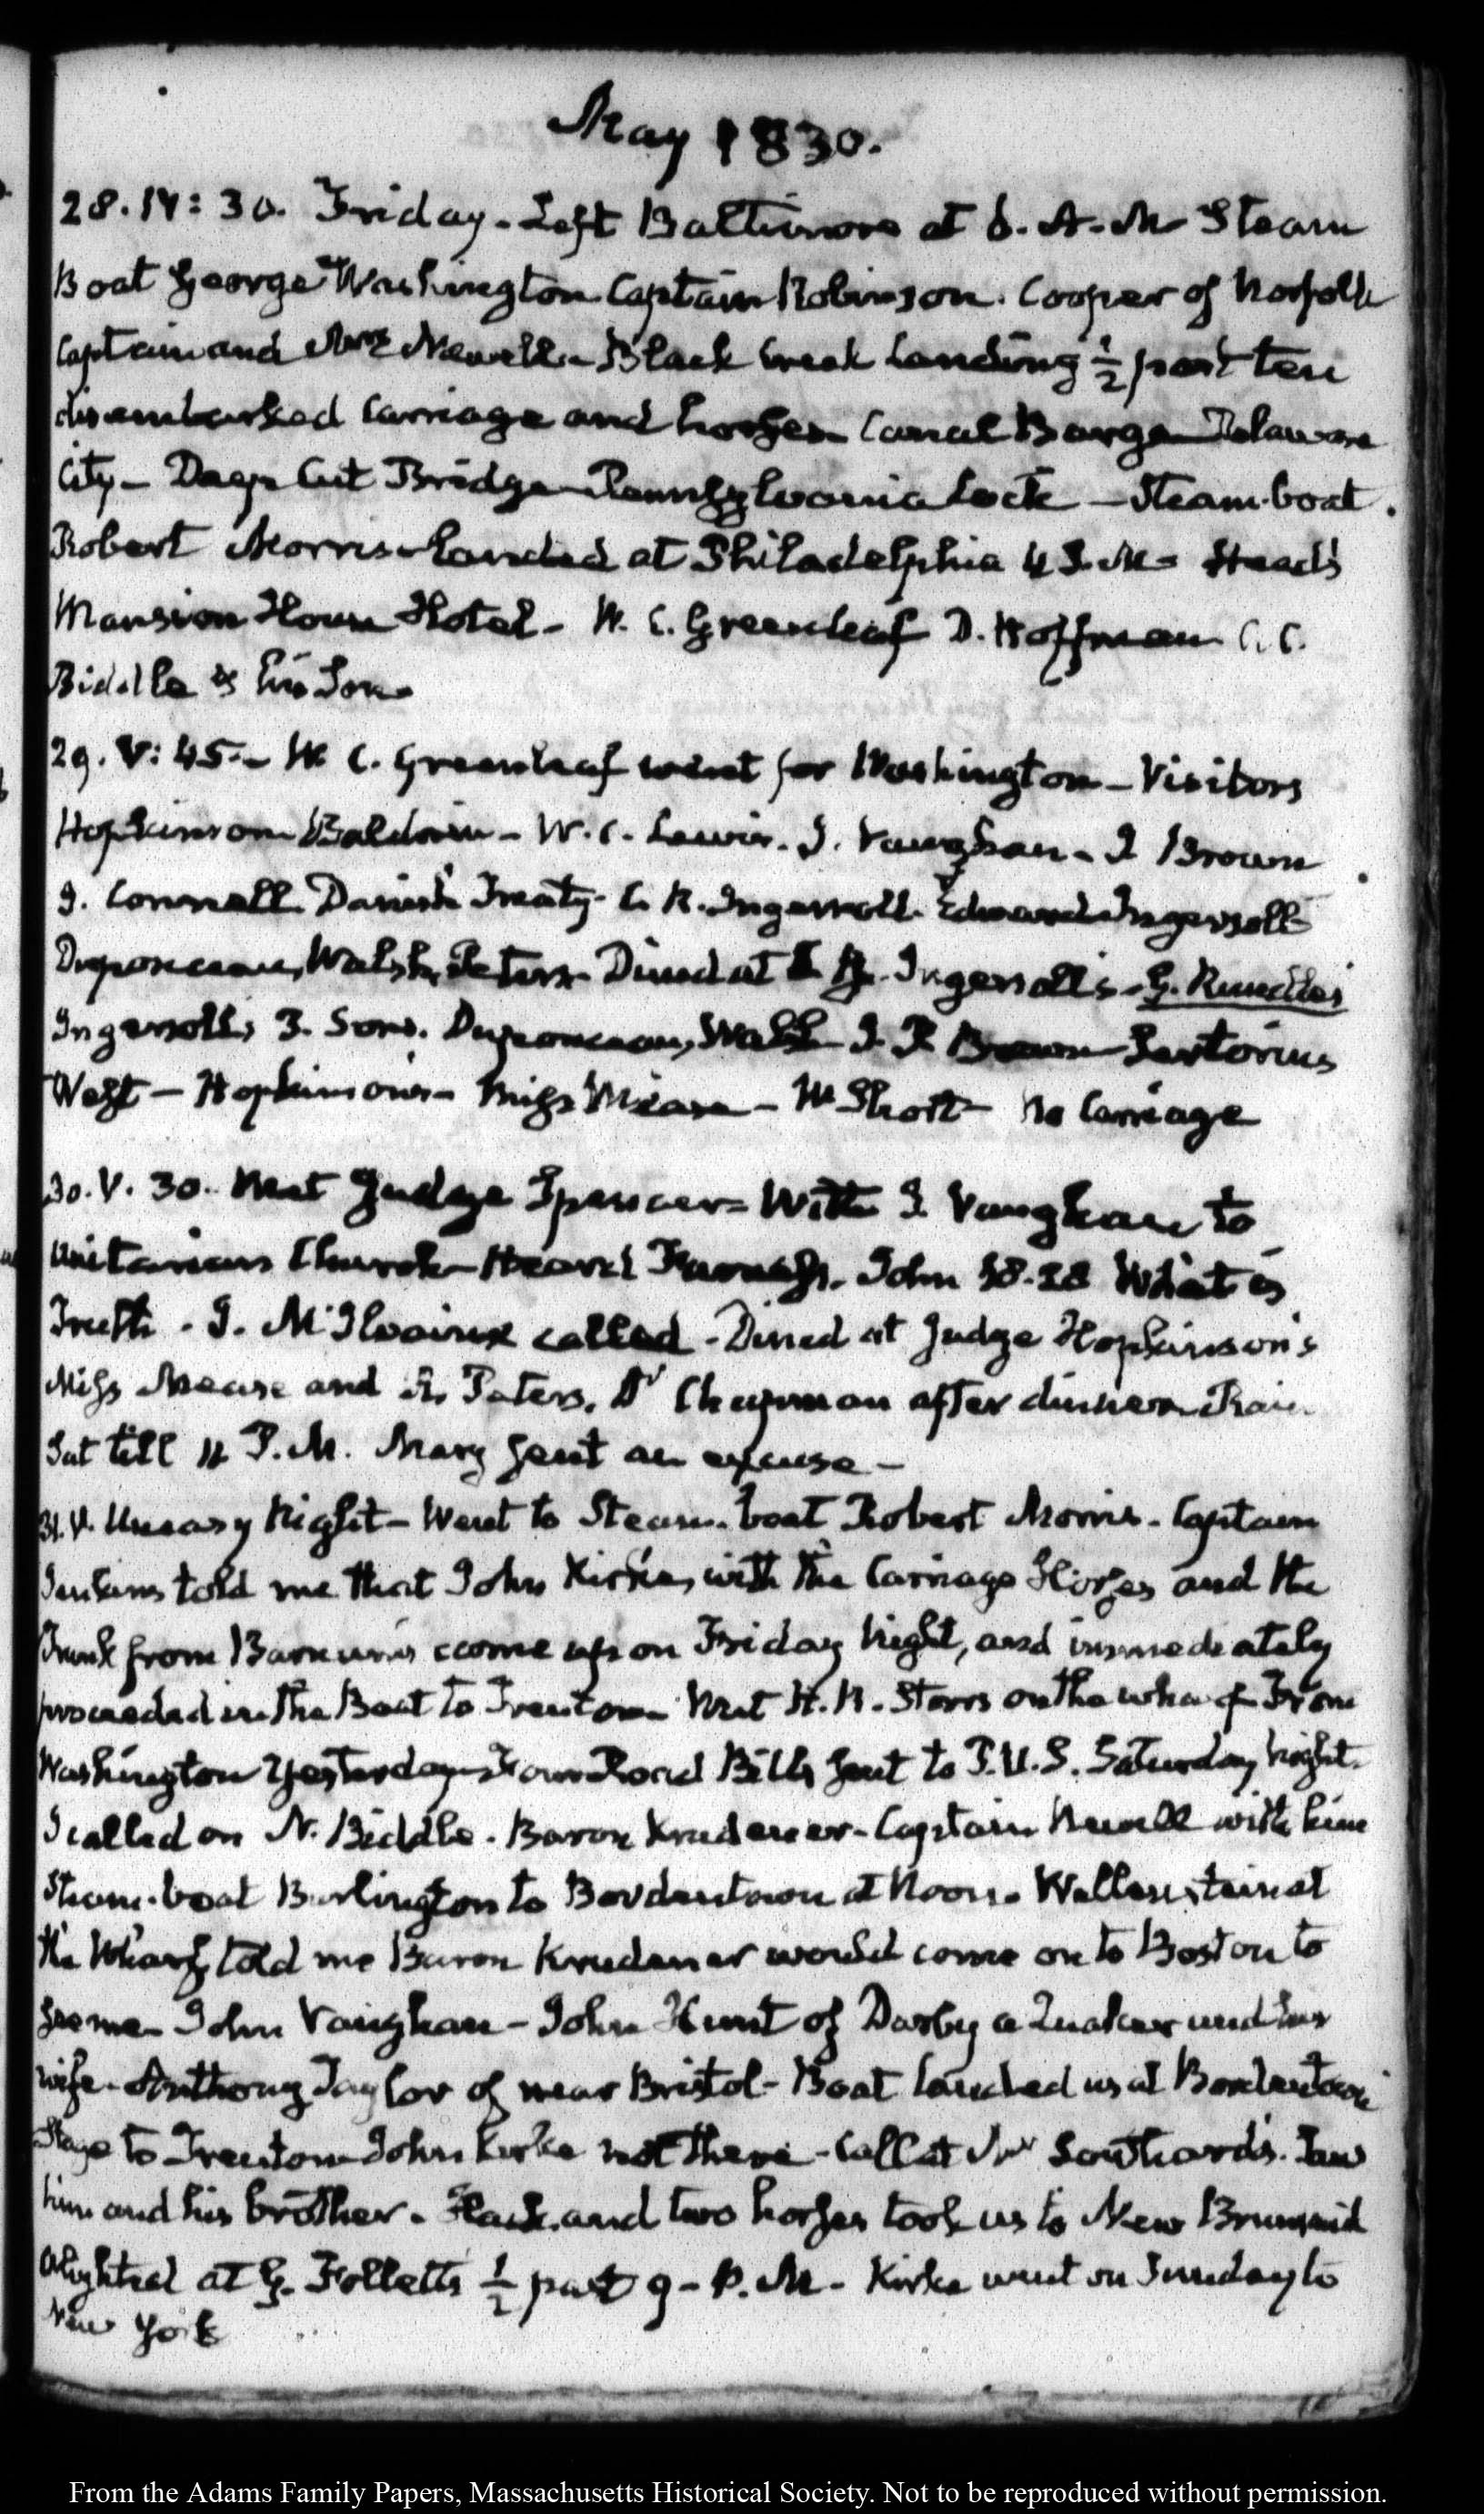 May 1830.
28. IV: 30. Friday. Left Baltimore at 6. A.M. Steam
Boat George Washington Captain Robinson. Cooper of Norfolk
Captain and Mrs Newell. Black Creek landing ½ past ten
disembarked carriage and horses. Canal Barge Delaware
City – Deep Cut Bridge – Pennsylvania Lock – Steam-boat
Robert Morris – landed at Philadelphia 4 P.M. Head's
Mansion House Hotel – W. C. Greenleaf D. Hoffman C. C.
Biddle & his Son.
29. V: 45. – W. C. Greenleaf went for Washington – Visitors
Hopkinson Baldwin – W. C. Lewis. J. Vaughan – J Brown
J. Connell Danish Treaty – C. R. Ingersoll. Edward Ingersoll
Duponceau, Walsh, Peters – Dined at Ingersoll's –
Ingersoll's 3. Sons. Duponceau, Walsh J. P. Brown – Sartorius
West – Hopkinson's – Miss Mease – W Short – No Carriage
30. V. 30. Met Judge Spencer – With J. Vaughan to
Unitarian Church – Heard Furness. John 18.38 What is
Truth. J. McIlvaine called – Dined at Judge Hopkinson's
Miss Mease and R. Peters. Dr Chapman after dinner – Rain
Sat till 11 P.M. Mary sent an excuse –
31. V. Uneasy Night – Went to Steam-boat Robert Morris – Captain
Jenkins told me that John Kirke, with the Carriage Horses and the
Trunk from Barnum's came up on Friday Night, and immediately
proceeded in the Boat to Trenton – Met H. R. Storrs on the wharf From
Washington Yesterday – Four Road Bills sent to P.U.S. Saturday night.
I called on N. Biddle. Baron Krudener – Captain Newell with him
Steam-boat Burlington to Bordentown at Noon. Wallenstein at
the Wharf, told me Baron Krudener would come on to Boston to
see me – John Vaughan – John Hunt of Darby a Quaker and his
wife – Anthony Taylor of near Bristol – Boat landed us at Bordentown
Stage to Trenton – John Kirke not there – Call at Mr Southard's. Saw
him and his brother. Hack and two horses took us to New Brunswick
Alighted at G. Follett's ½ past 9 – P.M. – Kirke went on Sunday to
New York
From the Adams Family Papers, Massachusetts Historical Society. Not to be reproduced without permission.